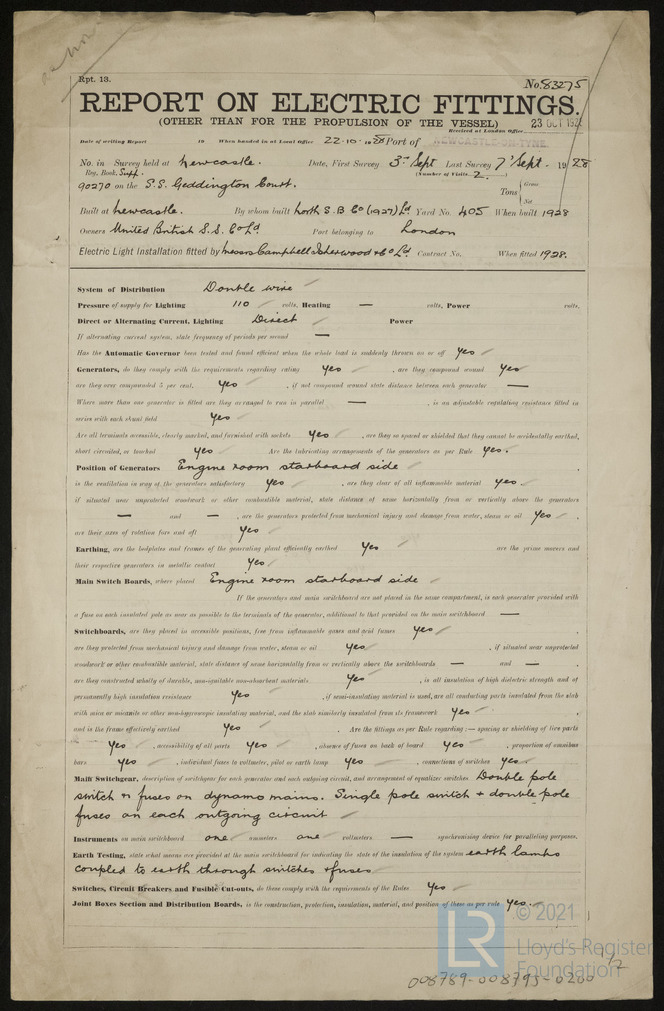 Rpt. 13.
No. 83275
REPORT ON ELECTRIC FITTINGS.
(OTHER THAN FOR THE PROPULSION OF THE VESSEL)
Received at London Office 23 OCT 192
Date of writing Report 19 When handed in at Local Office 22.10.1928 Port of NEWCASTLE-ON-TYNE
No. in Survey held at Newcastle. Date, First Survey 3rd Sept Last Survey 7th Sept. 1928
Reg. Book. Supp. (Number of Visits 2.)
90270 on the S.S. Geddington Court. Tons { Gross Net
Built at Newcastle. By whom built North S.B Co (1927) Ld Yard No. 405 When built 1928
Owners United British S.S. Co Ld Port belonging to London
Electric Light Installation fitted by Messrs Campbell Isherwood & Co Ld. Contract No. When fitted 1928.
System of Distribution Double wire
Pressure of supply for Lighting 110 volts, Heating — volts, Power volts,
Direct or Alternating Current, Lighting Direct Power
If alternating current system, state frequency of periods per second —
Has the Automatic Governor been tested and found efficient when the whole load is suddenly thrown on or off Yes
Generators, do they comply with the requirements regarding rating Yes , are they compound wound Yes
are they over compounded 5 per cent. Yes , if not compound wound state distance between each generator —
Where more than one generator is fitted are they arranged to run in parallel — , is an adjustable regulating resistance fitted in
series with each shunt field Yes
Are all terminals accessible, clearly marked, and furnished with sockets Yes , are they so spaced or shielded that they cannot be accidentally earthed,
short circuited, or touched Yes Are the lubricating arrangements of the generators as per Rule Yes.
Position of Generators Engine room starboard side
is the ventilation in way of the generators satisfactory Yes , are they clear of all inflammable material Yes.
if situated near unprotected woodwork or other combustible material, state distance of same horizontally from or vertically above the generators
— and — , are the generators protected from mechanical injury and damage from water, steam or oil Yes ,
are their axes of rotation fore and aft Yes
Earthing, are the bedplates and frames of the generating plant efficiently earthed Yes are the prime movers and
their respective generators in metallic contact Yes
Main Switch Boards, where placed Engine room starboard side
If the generators and main switchboard are not placed in the same compartment, is each generator provided with
a fuse on each insulated pole as near as possible to the terminals of the generator, additional to that provided on the main switchboard —
Switchboards, are they placed in accessible positions, free from inflammable gases and acid fumes Yes ,
are they protected from mechanical injury and damage from water, steam or oil Yes , if situated near unprotected
woodwork or other combustible material, state distance of same horizontally from or vertically above the switchboards — and — ,
are they constructed wholly of durable, non-ignitable non-absorbent materials Yes , is all insulation of high dielectric strength and of
permanently high insulation resistance Yes , if semi-insulating material is used, are all conducting parts insulated from the slab
with mica or micanite or other non-hygroscopic insulating material, and the slab similarly insulated from its framework Yes ,
and is the frame effectively earthed Yes . Are the fittings as per Rule regarding:— spacing or shielding of live parts
Yes , accessibility of all parts Yes , absence of fuses on back of board Yes , proportion of omnibus
bars Yes , individual fuses to voltmeter, pilot or earth lamp Yes , connections of switches Yes.
Main Switchgear, description of switchgear for each generator and each outgoing circuit, and arrangement of equalizer switches Double pole
switch & fuses on dynamo mains. Single pole switch & double pole
fuses on each outgoing circuit
Instruments on main switchboard one ammeters one voltmeters — synchronising device for paralleling purposes.
Earth Testing, state what means are provided at the main switchboard for indicating the state of the insulation of the system earth lamps
coupled to earth through switches & fuses
Switches, Circuit Breakers and Fusible Cut-outs, do these comply with the requirements of the Rules Yes
Joint Boxes Section and Distribution Boards, is the construction, protection, insulation, material, and position of these as per rule Yes.
LR © 2021
Lloyd's Register
Foundation
1/2
008789-008795-0200